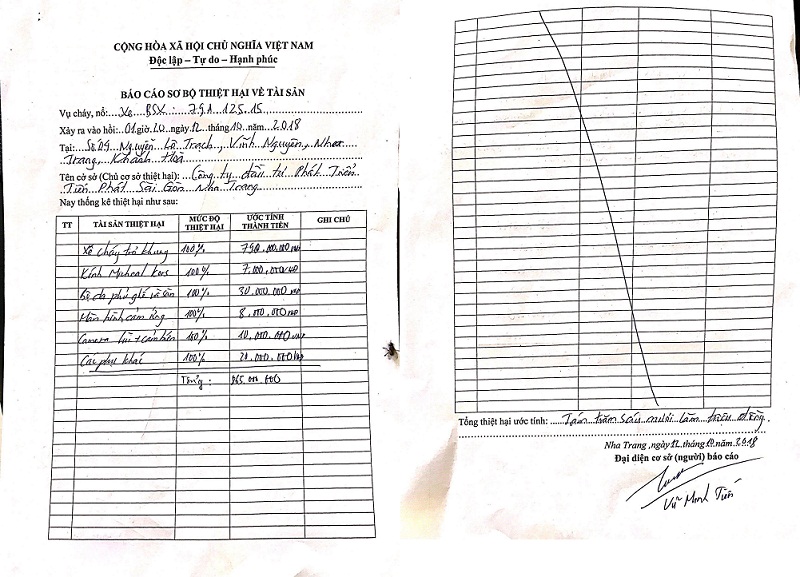 CỘNG HÒA XÃ HỘI CHỦ NGHĨA VIỆT NAM
Độc lập – Tự do – Hạnh phúc
BÁO CÁO SƠ BỘ THIỆT HẠI VỀ TÀI SẢN
Vụ cháy, nổ: Xe BSX: 79A 125.15
Xảy ra vào hồi: 01 giờ 20 ngày 12 tháng 10 năm 2018
Tại: Số 09 Nguyễn Lộ Trạch, Vĩnh Nguyên, Nha
Trang, Khánh Hoà
Tên cơ sở (Chủ cơ sở thiệt hại): Công ty đầu tư Phát Triển
Tiến Phát Sài Gòn Nha Trang
Nay thống kê thiệt hại như sau:
TT TÀI SẢN THIỆT HẠI MỨC ĐỘ THIỆT HẠI ƯỚC TÍNH THÀNH TIỀN GHI CHÚ
Xe cháy trơ khung 100% 790.000.000
Kính 100% 7.000.000
phủ ghế và sàn 100% 30.000.000
Màn hình cảm ứng 100% 8.000.000
Camera lùi + cảm biến 100% 10.000.000
Các phụ khác 100% 20.000.000
Tổng: 865.000.000
Tổng thiệt hại ước tính: Tám trăm sáu mươi lăm triệu đồng.
Nha Trang, ngày 12 tháng 10 năm 2018
Đại diện cơ sở (người) báo cáo
Vũ Minh Tiến